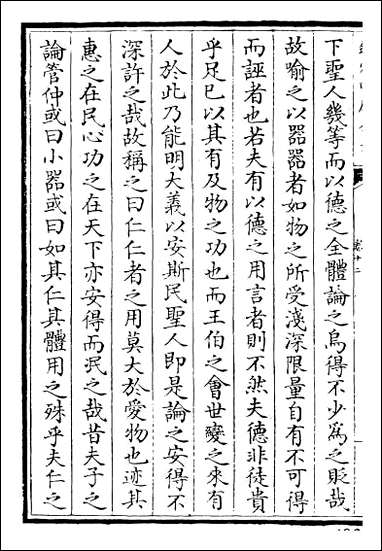 下聖人幾等而以德之全體論之烏得不少為之貶哉
故喻之以器器者如物之所受淺深限量自有不可得
而誣者也若夫有以德之用言者則不然夫德非徒貴
乎足已以其有及物之功也而王伯之會世變之來有
人於此乃能明大義以安斯民聖人即是論之安得不
深許之哉故稱之曰仁仁者之用莫大於愛物也迹其
惠之在民心功之在天下亦安得而泯之哉昔夫子之
論管仲或曰小器或曰如其仁其體用之殊乎夫仁之